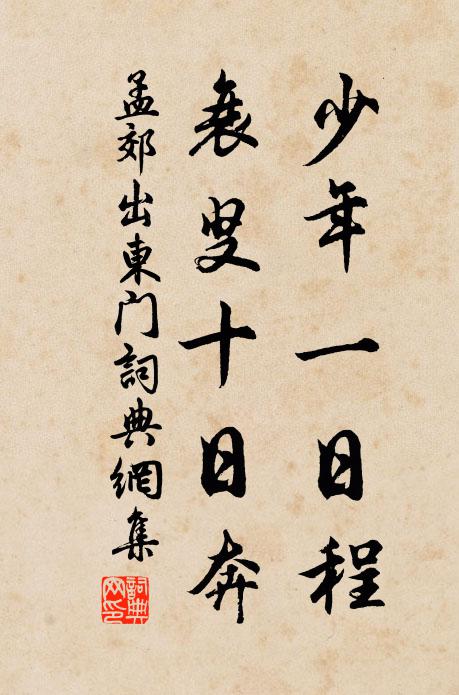 少年一日程
衰叟十日奔
孟郊出東門詞典網集
詞典網印